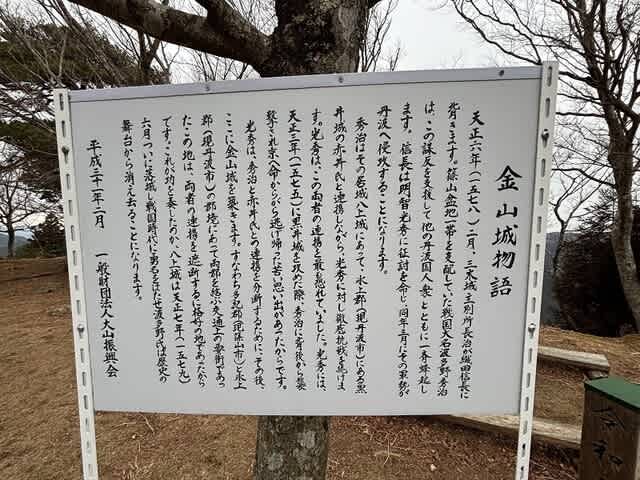 金山城物語
天正六年(一五七八)二月、三木城主別所長治が織田信長に
背きます。篠山盆地一帯を支配していた戦国大名波多野秀治
は、この謀反を支援して他の丹波国人衆とともに一斉蜂起し
ます。信長は明智光秀に征討を命じ、同年三月にその軍勢が
丹波へ侵攻することになります。
秀治はその居城八上城にあって、氷上郡(現丹波市)にある黒
井城の赤井氏と連携しながら、光秀に対し徹底抗戦を続けま
す。光秀は、この両者の連携を最も恐れていました。光秀には、
天正三年(一五七五)に黒井城を攻めた際、秀治に背後から急襲
撃され京へ命からがら逃げ帰った苦い思い出があったからです。
光秀は、秀治と赤井氏との連携を分断するために、その後、
ここに金山城を築きます。すなわち多紀郡(現篠山市)と氷上
郡(現丹波市)の郡境にあって両郡を結ぶ交通上の要衝であっ
たこの地は、両者の連携を遮断するに格好の地であったから
です。これが功を奏したのか、八上城は天正七年(一五七九)
六月ついに落城し戦国時代に勇名をはせた波多野氏は歴史の
舞台から消え去ることになります。
平成三十一年二月
一般財団法人大山振興会